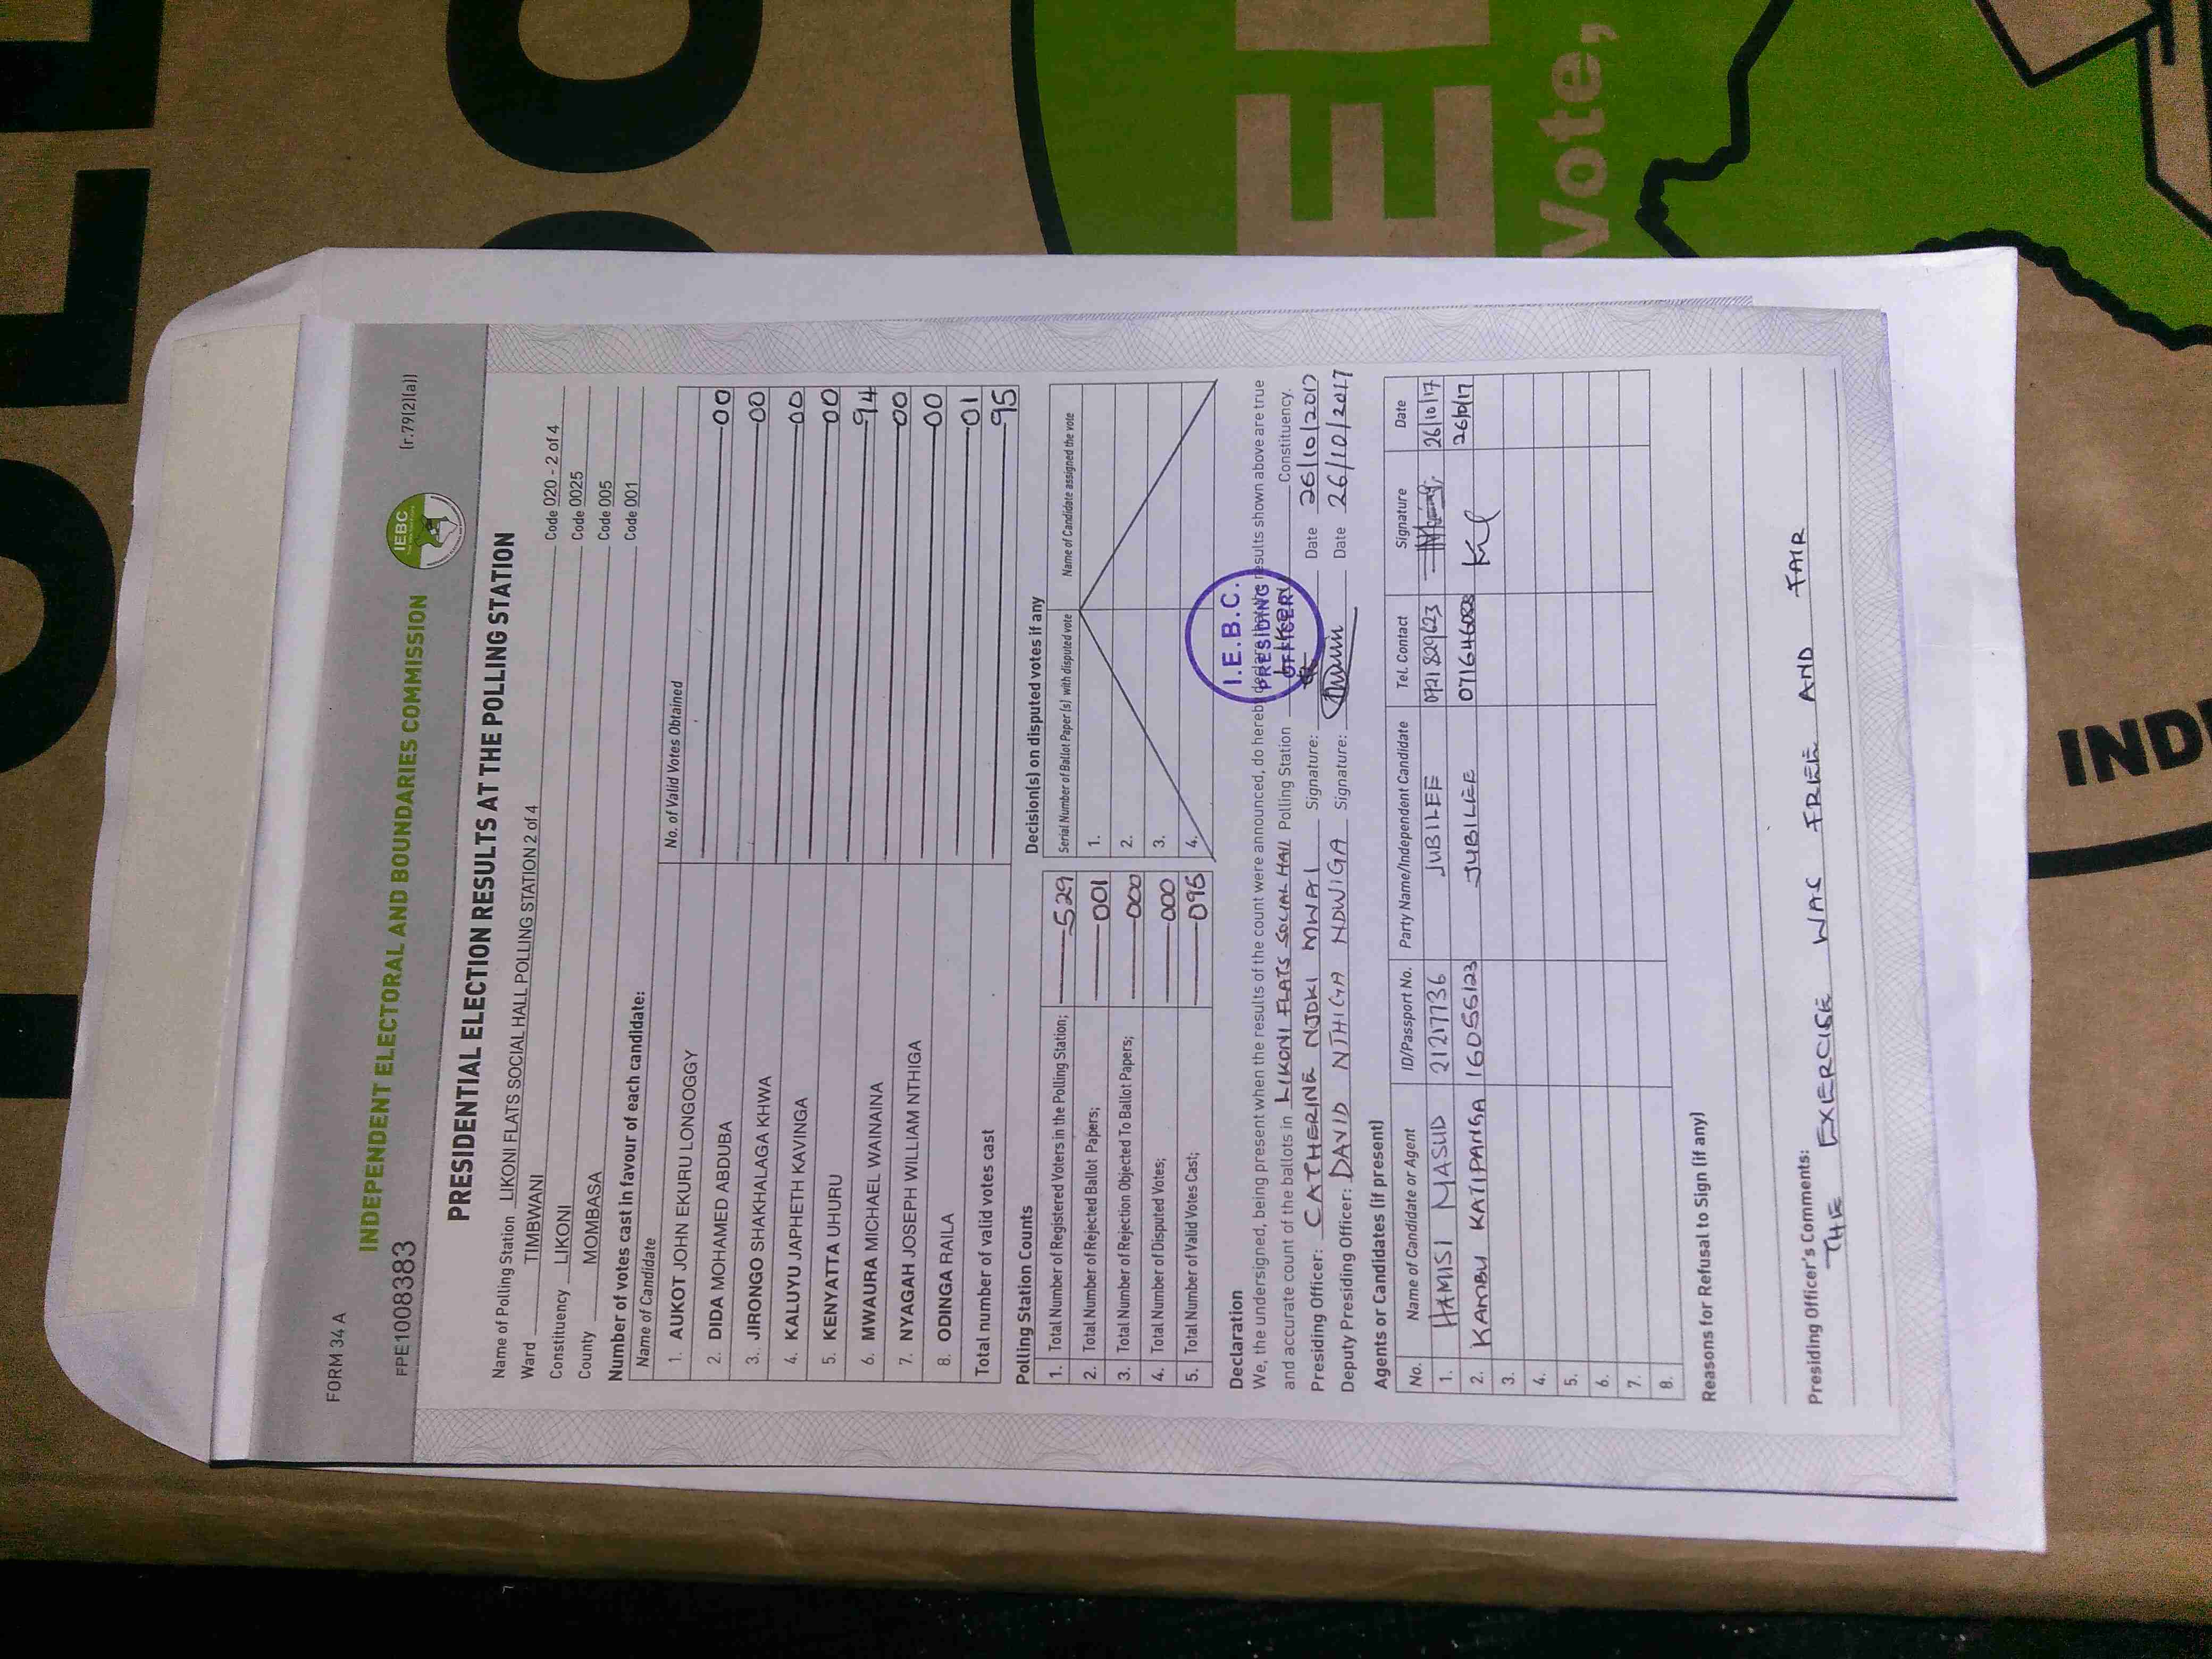 FORM 34 A
INDEPENDENT ELECTORAL AND BOUNDARIES COMMISSION
FPE1008383
IEBC
(r.79(2)(a))
PRESIDENTIAL ELECTION RESULTS AT THE POLLING STATION
Name of Polling Station LIKONI FLATS SOCIAL HALL POLLING STATION 2 of 4 Code 020 - 2 of 4
Ward TIMBWANI Code 0025
Constituency LIKONI Code 005
County MOMBASA Code 001
Number of votes cast in favour of each candidate:
Name of Candidate No. of Valid Votes Obtained
1. AUKOT JOHN EKURU LONGOGGY 00
2. DIDA MOHAMED ABDUBA 00
3. JIRONGO SHAKHALAGA KHWA 00
4. KALUYU JAPHETH KAVINGA 00
5. KENYATTA UHURU 94
6. MWAURA MICHAEL WAINAINA 00
7. NYAGAH JOSEPH WILLIAM NTHIGA 00
8. ODINGA RAILA 01
Total number of valid votes cast 95
Polling Station Counts
1. Total Number of Registered Voters in the Polling Station; 529
2. Total Number of Rejected Ballot Papers; 001
3. Total Number of Rejection Objected To Ballot Papers; 000
4. Total Number of Disputed Votes; 000
5. Total Number of Valid Votes Cast; 095
Decision(s) on disputed votes if any
Serial Number of Ballot Paper(s) with disputed vote Name of Candidate assigned the vote
1.
2.
3.
4.
Declaration
We, the undersigned, being present when the results of the count were announced, do hereby declare that the results shown above are true
and accurate count of the ballots in LIKONI FLATS SOCIAL HALL Polling Station LIKONI Constituency.
I.E.B.C.
PRESIDING
OFFICER
Presiding Officer: CATHERINE NJOKI MWAI Signature: Date 26/10/2017
Deputy Presiding Officer: DAVID NTHIGA NDWIGA Signature: Date 26/10/2017
Agents or Candidates (if present)
No. Name of Candidate or Agent ID/Passport No. Party Name/Independent Candidate Tel. Contact Signature Date
1. HAMISI MASUD 21217736 JUBILEE 0721829623 26/10/17
2. KAMBU KATIPANGA 16055123 JUBILEE 26/10/17
3.
4.
5.
6.
7.
8.
Reasons for Refusal to Sign (if any)
Presiding Officer's Comments:
THE EXERCISE WAS FREE AND FAIR
Vote,
IND